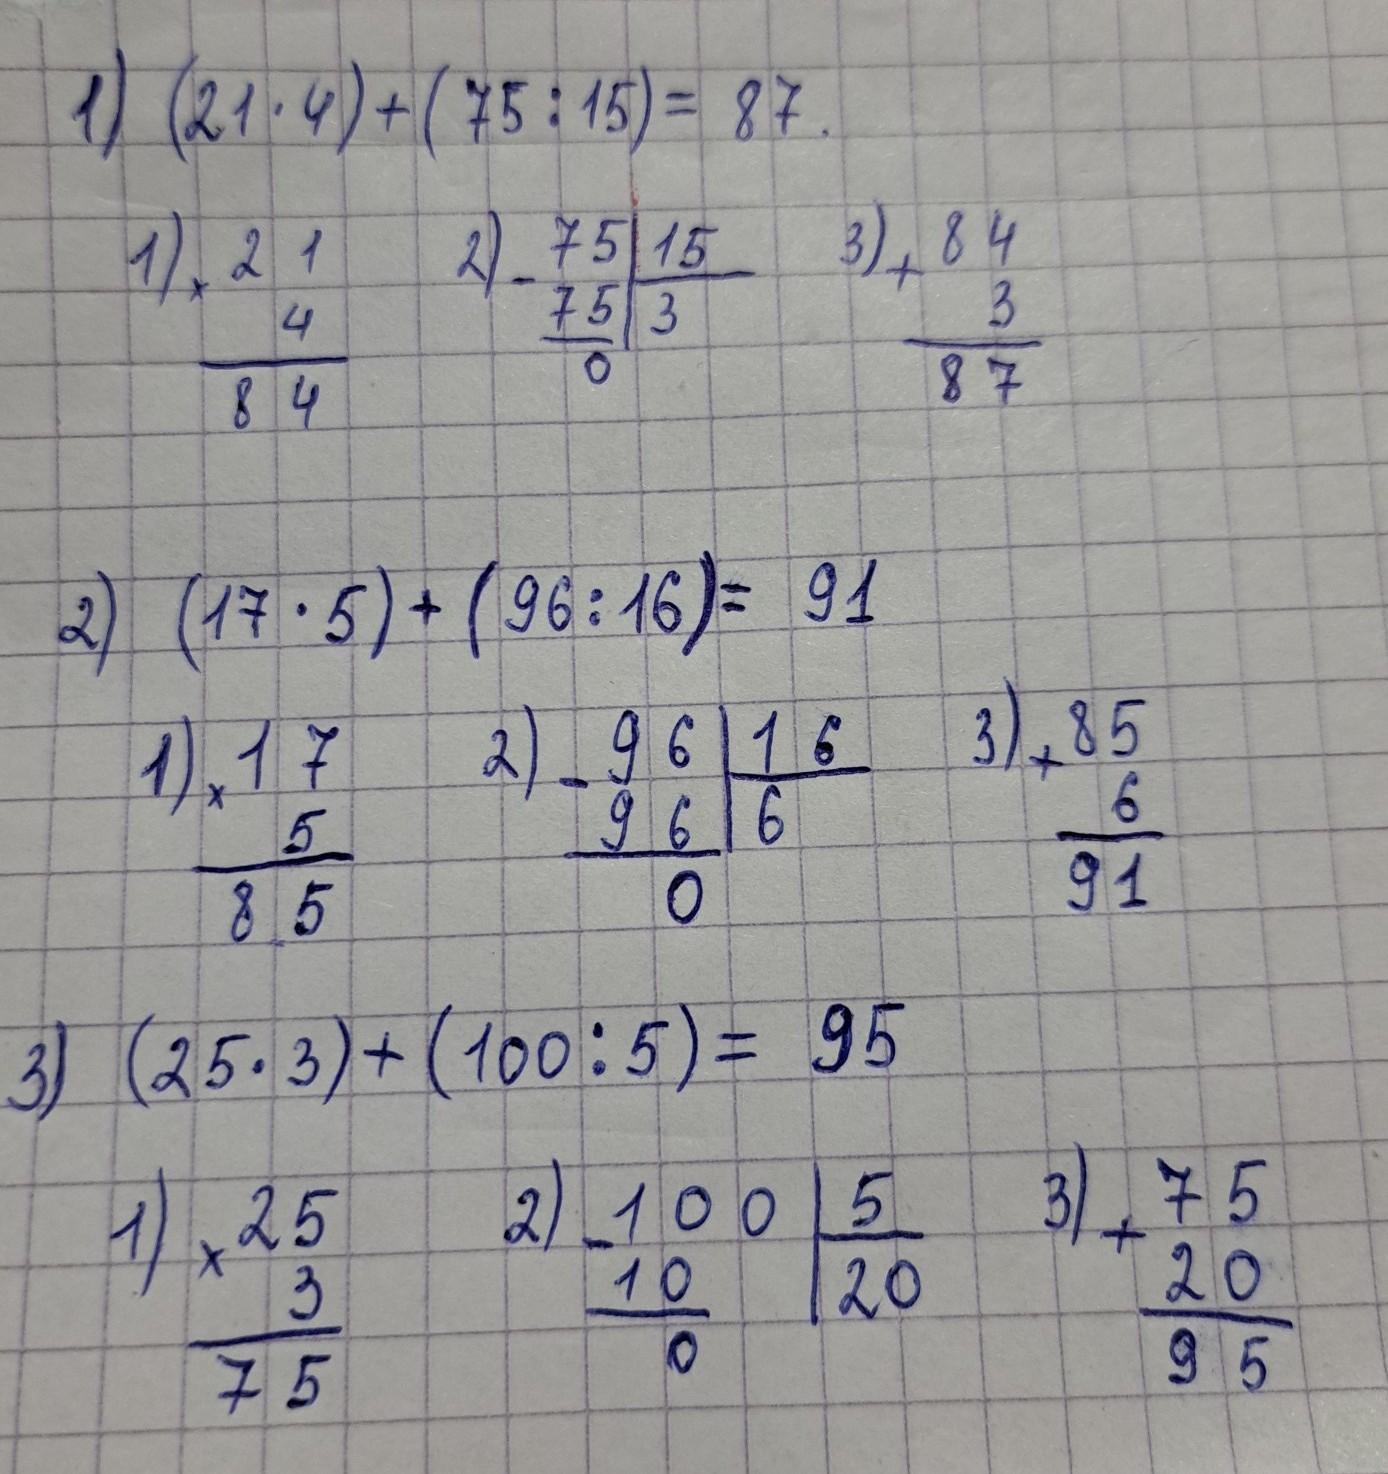 1) (21·4)+(75:15)= 87.
1) × 21 2) - 75 | 15 3) + 84
4 75 | 3 3
84 0 87
2) (17·5)+(96:16)= 91
1) × 17 2) - 96 | 16 3) + 85
5 96 | 6 6
85 0 91
3) (25·3)+(100:5)= 95
1) × 25 2) - 100 | 5 3) + 75
3 10 | 20 20
75 0 95